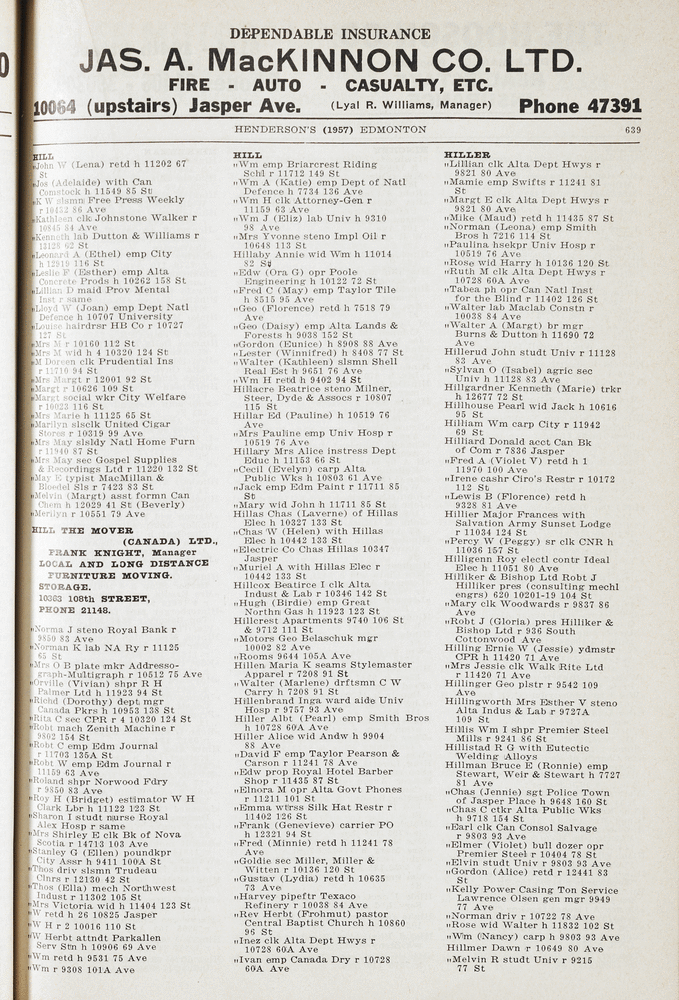 DEPENDABLE INSURANCE
JAS. A. MacKINNON CO. LTD.
FIRE - AUTO - CASUALTY, ETC.
10064 (upstairs) Jasper Ave. (Lyal R. Williams, Manager) Phone 47391
HENDERSON'S (1957) EDMONTON 639
HILL
„John W (Lena) retd h 11202 67
St
„Jos (Adelaide) with Can
Comstock h 11549 85 St
„K W slsmn Free Press Weekly
r 10432 86 Ave
„Kathleen clk Johnstone Walker r
10845 84 Ave
„Kenneth lab Dutton & Williams r
13125 62 St
„Leonard A (Ethel) emp City
h 12919 116 St
„Leslie F (Esther) emp Alta
Concrete Prods h 10262 158 St
„Lillian D maid Prov Mental
Inst r same
„Lloyd W (Joan) emp Dept Natl
Defence h 10707 University
„Louise hairdrsr HB Co r 10727
127 St
„Mrs M r 10160 112 St
„Mrs M wid h 4 10320 124 St
„M Doreen clk Prudential Ins
r 11710 94 St
„Mrs Margt r 12001 92 St
„Margt r 10626 109 St
„Margt social wkr City Welfare
r 10023 116 St
„Mrs Marie h 11125 65 St
„Marilyn slsclk United Cigar
Stores r 10319 99 Ave
„Mrs May slsldy Natl Home Furn
r 11940 87 St
„Mrs May sec Gospel Supplies
& Recordings Ltd r 11220 132 St
„May E typist MacMillan &
Bloedel Sls r 7423 83 St
„Melvin (Margt) asst formn Can
Chem h 12029 41 St (Beverly)
„Merilyn r 10551 79 Ave
HILL THE MOVER
(CANADA) LTD.,
FRANK KNIGHT, Manager
LOCAL AND LONG DISTANCE
FURNITURE MOVING.
STORAGE.
10363 108th STREET,
PHONE 21148.
„Norma J steno Royal Bank r
9850 83 Ave
„Norman K lab NA Ry r 11125
65 St
„Mrs O B plate mkr Addresso-
graph-Multigraph r 10512 75 Ave
„Orville (Vivian) shpr R H
Palmer Ltd h 11923 94 St
„Richd (Dorothy) dept mgr
Canada Pkrs h 10953 138 St
„Rita C sec CPR r 4 10320 124 St
„Robt mach Zenith Machine r
9802 154 St
„Robt C emp Edm Journal
r 11703 135A St
„Robt W emp Edm Journal r
11159 63 Ave
„Roland shpr Norwood Fdry
r 9850 83 Ave
„Roy H (Bridget) estimator W H
Clark Lbr h 11122 123 St
„Sharon I studt nurse Royal
Alex Hosp r same
„Mrs Shirley E clk Bk of Nova
Scotia r 14713 103 Ave
„Stanley G (Ellen) poundkpr
City Assr h 9411 100A St
„Thos driv slsmn Trudeau
Clnrs r 12130 42 St
„Thos (Ella) mech Northwest
Industr r 11302 105 St
„Mrs Victoria wid h 11404 123 St
„W retd h 26 10825 Jasper
„W H r 2 10016 110 St
„W Herbt attndt Parkallen
Serv Stn h 10906 69 Ave
„Wm retd h 9531 75 Ave
„Wm r 9308 101A Ave
HILL
„Wm emp Briarcrest Riding
Schl r 11712 149 St
„Wm A (Katie) emp Dept of Natl
Defence h 7734 136 Ave
„Wm H clk Attorney-Gen r
11159 63 Ave
„Wm J (Eliz) lab Univ h 9310
98 Ave
„Mrs Yvonne steno Impl Oil r
10648 113 St
Hillaby Annie wid Wm h 11014
82 St
„Edw (Ora G) opr Poole
Engineering h 10122 72 St
„Fred C (May) emp Taylor Tile
h 8515 95 Ave
„Geo (Florence) retd h 7518 79
Ave
„Geo (Daisy) emp Alta Lands &
Forests h 9038 152 St
„Gordon (Eunice) h 8908 88 Ave
„Lester (Winnifred) h 8408 77 St
„Walter (Kathleen) slsmn Shell
Real Est h 9651 76 Ave
„Wm H retd h 9402 94 St
Hillacre Beatrice steno Milner,
Steer, Dyde & Assocs r 10807
115 St
Hillar Ed (Pauline) h 10519 76
Ave
„Mrs Pauline emp Univ Hosp r
10519 76 Ave
Hillary Mrs Alice instress Dept
Educ h 11153 66 St
„Cecil (Evelyn) carp Alta
Public Wks h 10803 61 Ave
„Jack emp Edm Paint r 11711 85
St
„Mary wid John h 11711 85 St
Hillas Chas (Laverne) of Hillas
Elec h 10327 133 St
„Chas W (Helen) with Hillas
Elec h 10442 133 St
„Electric Co Chas Hillas 10347
Jasper
„Muriel A with Hillas Elec r
10442 133 St
Hillcox Beatirce I clk Alta
Indust & Lab r 10346 142 St
„Hugh (Birdie) emp Great
Northn Gas h 11923 123 St
Hillcrest Apartments 9740 106 St
& 9712 111 St
„Motors Geo Belaschuk mgr
10002 82 Ave
„Rooms 9644 105A Ave
Hillen Maria K seams Stylemaster
Apparel r 7208 91 St
„Walter (Marlene) drftsmn C W
Carry h 7208 91 St
Hillenbrand Inga ward aide Univ
Hosp r 9757 93 Ave
Hiller Albt (Pearl) emp Smith Bros
h 10728 60A Ave
Hiller Alice wid Andw h 9904
88 Ave
„David F emp Taylor Pearson &
Carson r 11241 78 Ave
„Edw prop Royal Hotel Barber
Shop r 11435 87 St
„Elnora M opr Alta Govt Phones
r 11211 101 St
„Emma wtrss Silk Hat Restr r
11402 126 St
„Frank (Genevieve) carrier PO
h 12321 94 St
„Fred (Minnie) retd h 11241 78
Ave
„Goldie sec Miller, Miller &
Witten r 10136 120 St
„Gustav (Lydia) retd h 10635
73 Ave
„Harvey pipeftr Texaco
Refinery r 10038 84 Ave
„Rev Herbt (Frohmut) pastor
Central Baptist Church h 10860
96 St
„Inez clk Alta Dept Hwys r
10728 60A Ave
„Ivan emp Canada Dry r 10728
60A Ave
HILLER
„Lillian clk Alta Dept Hwys r
9821 80 Ave
„Mamie emp Swifts r 11241 81
St
„Margt E clk Alta Dept Hwys r
9821 80 Ave
„Mike (Maud) retd h 11435 87 St
„Norman (Leona) emp Smith
Bros h 7216 114 St
„Paulina hsekpr Univ Hosp r
10519 76 Ave
„Rose wid Harry h 10136 120 St
„Ruth M clk Alta Dept Hwys r
10728 60A Ave
„Tabea ph opr Can Natl Inst
for the Blind r 11402 126 St
„Walter lab Maclab Constn r
10038 84 Ave
„Walter A (Margt) br mgr
Burns & Dutton h 11690 72
Ave
Hillerud John studt Univ r 11128
83 Ave
„Sylvan O (Isabel) agric sec
Univ h 11128 83 Ave
Hillgardner Kenneth (Marie) trkr
h 12677 72 St
Hillhouse Pearl wid Jack h 10616
95 St
Hilliam Wm carp City r 11942
69 St
Hilliard Donald acct Can Bk
of Com r 7836 Jasper
„Fred A (Violet V) retd h 1
11970 100 Ave
„Irene cashr Ciro's Restr r 10172
112 St
„Lewis B (Florence) retd h
9328 81 Ave
Hillier Major Frances with
Salvation Army Sunset Lodge
r 11034 124 St
„Percy W (Peggy) sr clk CNR h
11036 157 St
Hilligenn Roy electl contr Ideal
Elec h 11051 80 Ave
Hilliker & Bishop Ltd Robt J
Hilliker pres (consulting mechl
engrs) 620 10201-19 104 St
„Mary clk Woodwards r 9837 86
Ave
„Robt J (Gloria) pres Hilliker &
Bishop Ltd r 936 South
Cottonwood Ave
Hilling Ernie W (Jessie) ydmstr
CPR h 11420 71 Ave
„Mrs Jessie clk Walk Rite Ltd
r 11420 71 Ave
Hillinger Geo plstr r 9542 109
Ave
Hillingworth Mrs Esther V steno
Alta Indus & Lab r 9727A
109 St
Hillis Wm I shpr Premier Steel
Mills r 9241 86 St
Hillistad R G with Eutectic
Welding Alloys
Hillman Bruce E (Ronnie) emp
Stewart, Weir & Stewart h 7727
81 Ave
„Chas (Jennie) sgt Police Town
of Jasper Place h 9648 160 St
„Chas C ctkr Alta Public Wks
h 9718 154 St
„Earl clk Can Consol Salvage
r 9803 93 Ave
„Elmer (Violet) bull dozer opr
Premier Steel r 10404 78 St
„Elvin studt Univ r 9803 93 Ave
„Gordon (Alice) retd r 12441 83
St
„Kelly Power Casing Ton Service
Lawrence Olsen gen mgr 9949
77 Ave
„Norman driv r 10722 78 Ave
„Rose wid Walter h 11832 102 St
„Wm (Nancy) carp h 9803 93 Ave
Hillmer Dawn r 10649 80 Ave
„Melvin R studt Univ r 9215
77 St